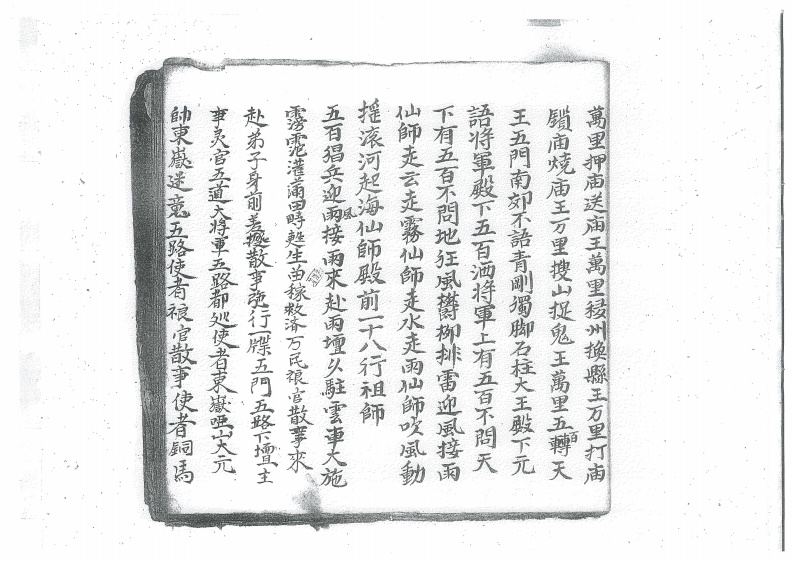 萬里押庙送庙王萬里移州換縣王万里打庙
鎖庙燒庙王万里搜山捉鬼王萬里五百轉天
王五門南郊不語青剛獨脚石柱大王殿下元
語将軍殿下五百洒将軍上有五百不問天
下有五百不問地狂風欝柳排雷迎風接雨
仙師走云走霧仙師走水走雨仙師吹風動
揺滚河起海仙師殿前一十八行祖師
五百猖兵迎風接雨來赴雨壇以駐雲車大施
霶霑灌蒲田時甦生苗稼救济万民狼官散事來
赴弟子身前差撥散事強行一牒五門五路下壇主
事灵官五道大将軍五路都巡使者東嶽啞山大元
帥東嶽迷竟五路使者狼官散事使者銅馬